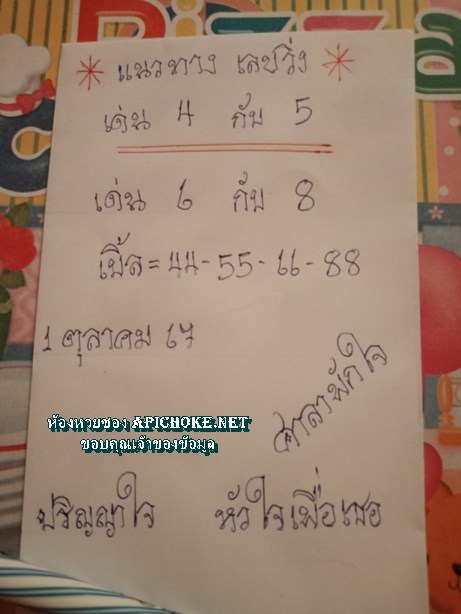 แนวทาง เลขวิ่ง
เด่น 4 กับ 5
เด่น 6 กับ 8
เบิ้ล = 44-55-66-88
1 ตุลาคม 67
ศาลาพักใจ
ห้องหวยซอง APICHOKE.NET
ขอบคุณเจ้าของข้อมูล
ปริญญาใจ หัวใจเพื่อเธอ